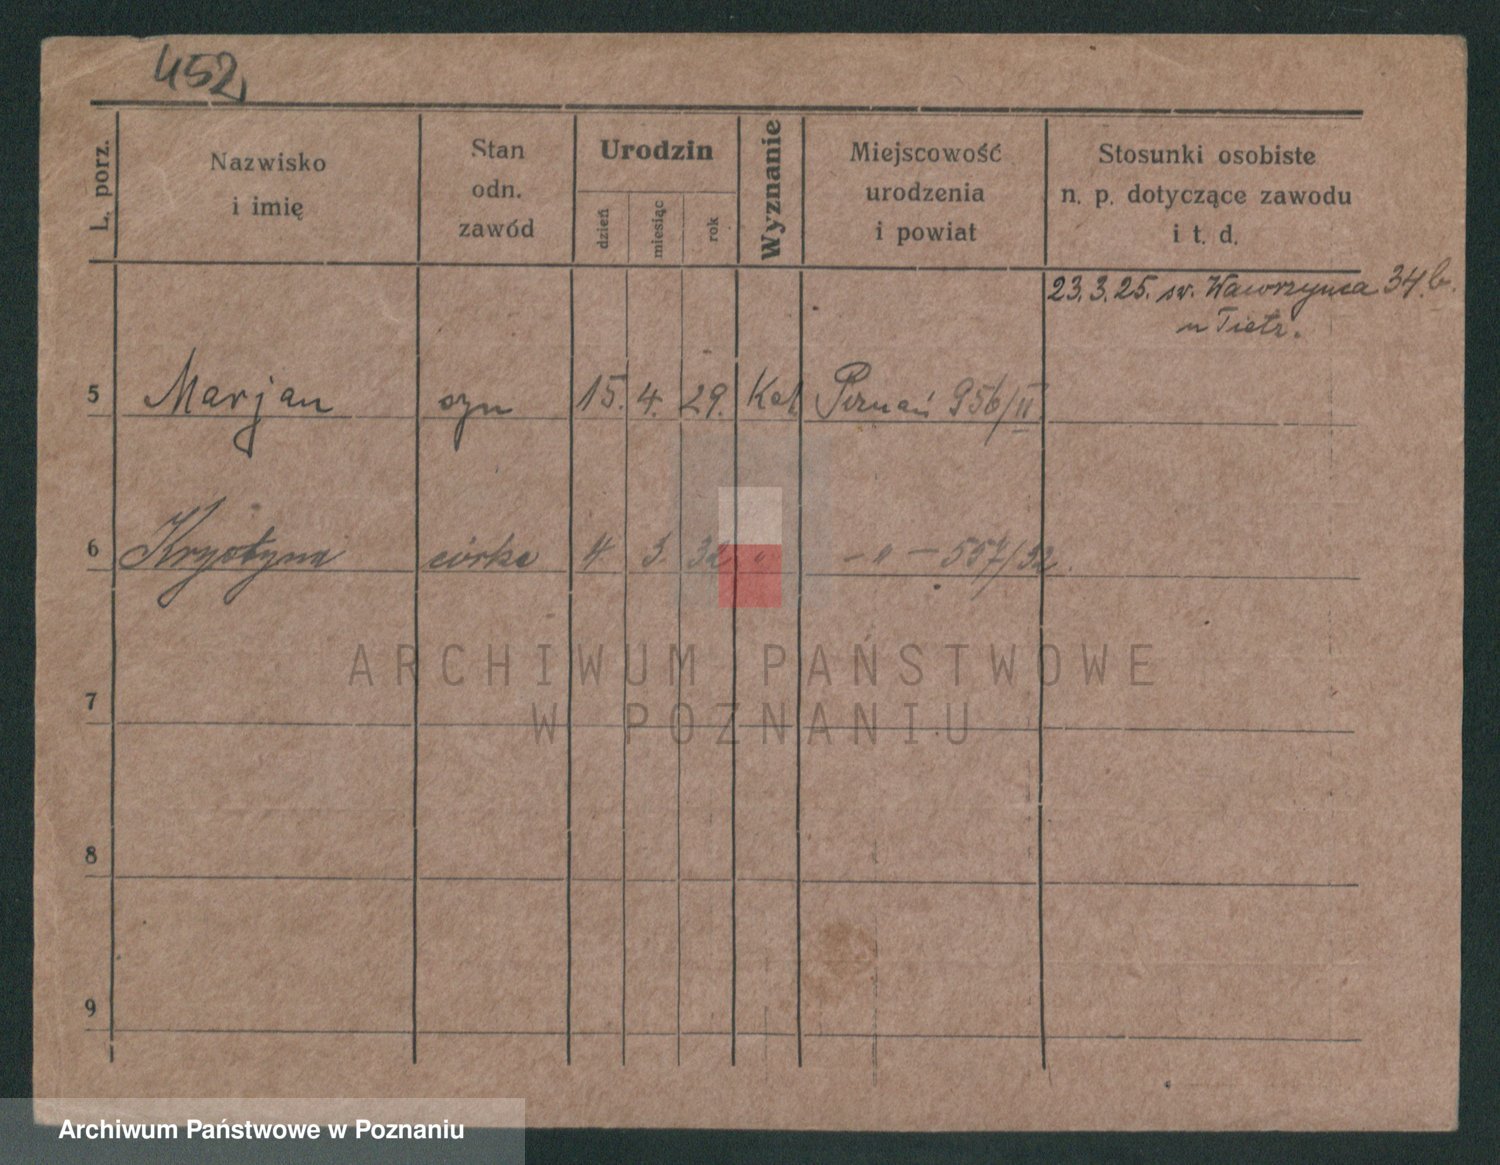 452
L. porz.
Nazwisko
i imię
Stan
odn.
zawód
Urodzin
dzień
miesiąc
rok
Wyznanie
Miejscowość
urodzenia
i powiat
Stosunki osobiste
n. p. dotyczące zawodu
i t. d.
23.3.25. św. Wawrzynca 34 b.
u Tietz.
5 Marjan syn 15. 4. 29. Kat Poznań 956/II
6 Krystyna córka 4 3. 32 " — " — 557/32.
7
8
9
ARCHIWUM PAŃSTWOWE
W POZNANIU
Archiwum Państwowe w Poznaniu